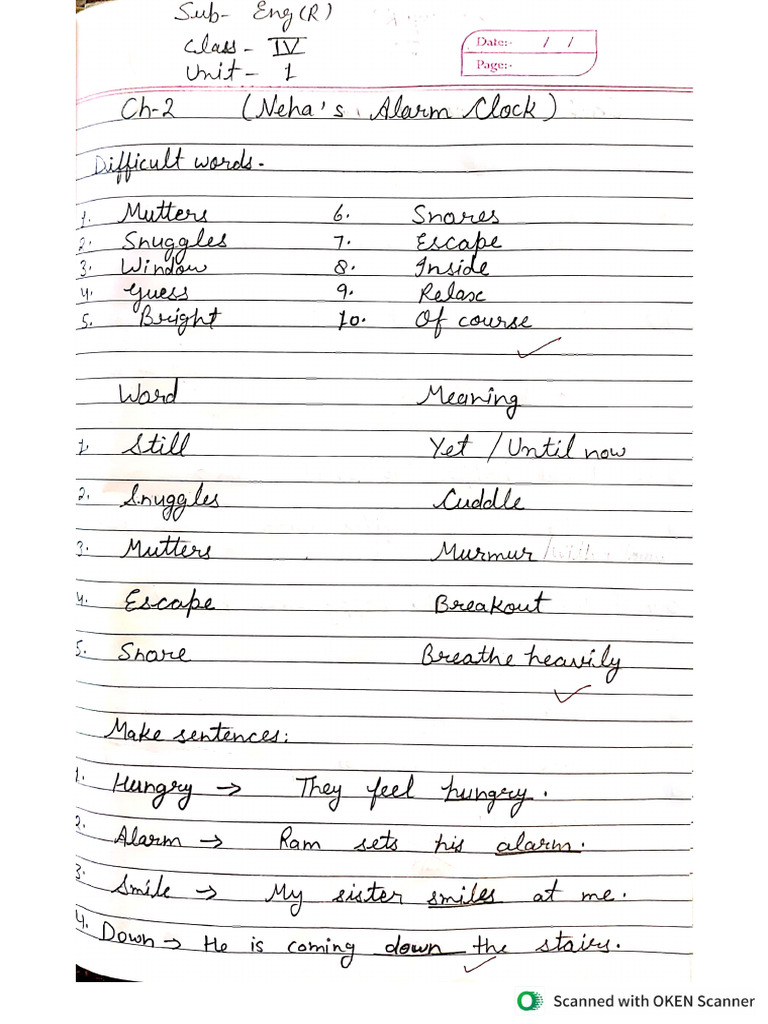 Sub- Eng(R)
Class- IV
Unit- 1
Date:- / /
Page:-
Ch-2 (Neha's Alarm Clock)
Difficult words-
1. Mutters 6. Snores
2. Snuggles 7. Escape
3. Window 8. Inside
4. Guess 9. Relax
5. Bright 10. Of course
Word Meaning
1. Still Yet / Until now
2. Snuggles Cuddle
3. Mutters Murmur
4. Escape Breakout
5. Snore Breathe heavily
Make sentences:
1. Hungry → They feel hungry.
2. Alarm → Ram sets his alarm.
3. Smile → My sister smiles at me.
4. Down → He is coming down the stairs.
Scanned with OKEN Scanner